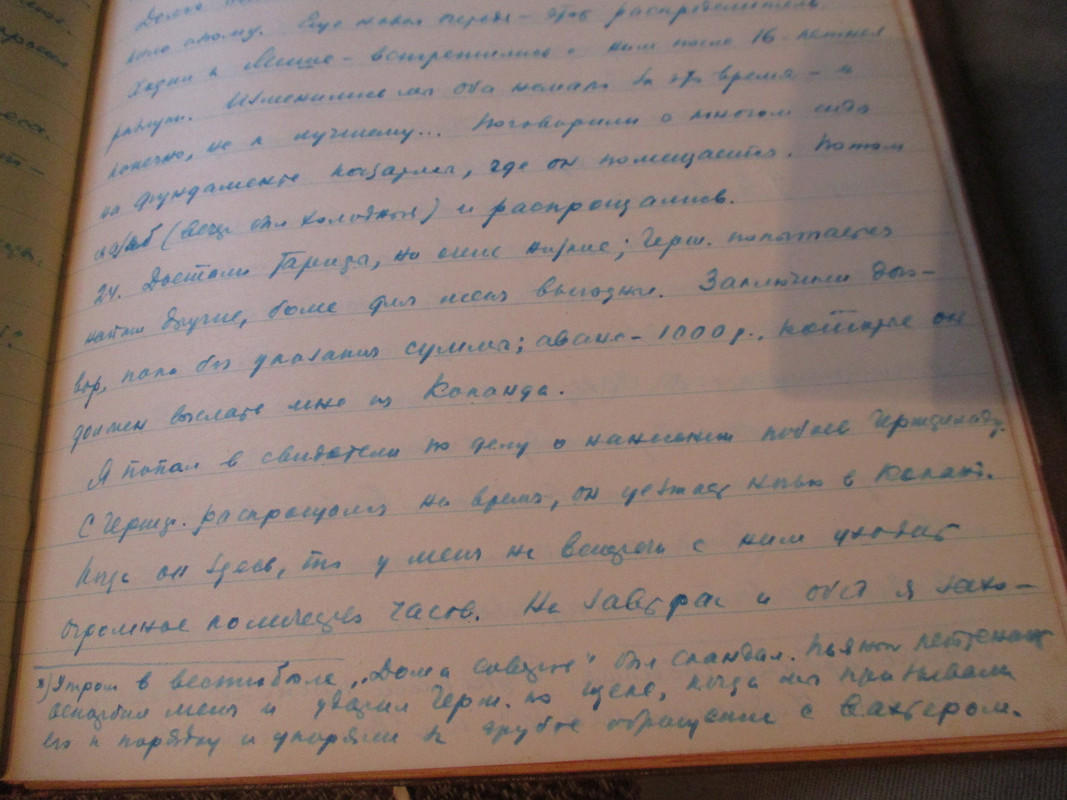 Долго
потому. Еще новая очередь – этот распределитель.
Ходил к Мише – встретились с ним после 16-летней
разлуки. Изменились мы оба немало за это время – и
конечно, не к лучшему... Поговорили о многом сидя
на фундаменте казармы, где он помещается. Потом
(вечер был холодный) и распрощались.
24. Достали Гариза, но очень ; Герш. попытается
найти другие, более для меня выгодные. Заключили дого-
вор, пока без указания суммы; аванс – 1000 р., которые он
должен выслать мне из Коканда.
Я попал в свидетели по делу о нанесении побоев Гершенкопу.
С Герш. распрощался на время, он уезжает ночью в Коканд.
Когда он здесь, то у меня на встречи с ним уходит
огромное количество часов. На завтрак и обед я захо-
*) Утром в вестибюле „Дома советов" был скандал. Пьяный лейтенант
оскорбил меня и ударил Герш. по щеке, когда мы призывали
его к порядку и упрекали за грубое обращение с вахтером.